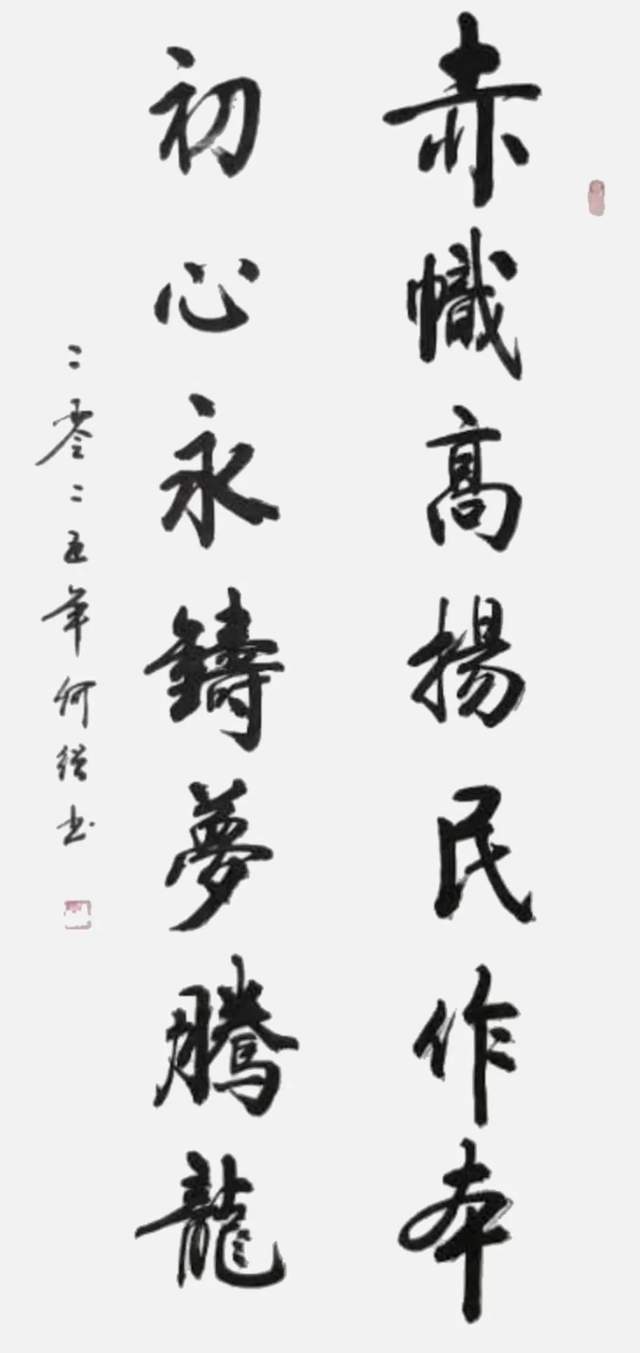 赤幟高揚民作本
初心永鑄夢騰龍
二零二五年何继书